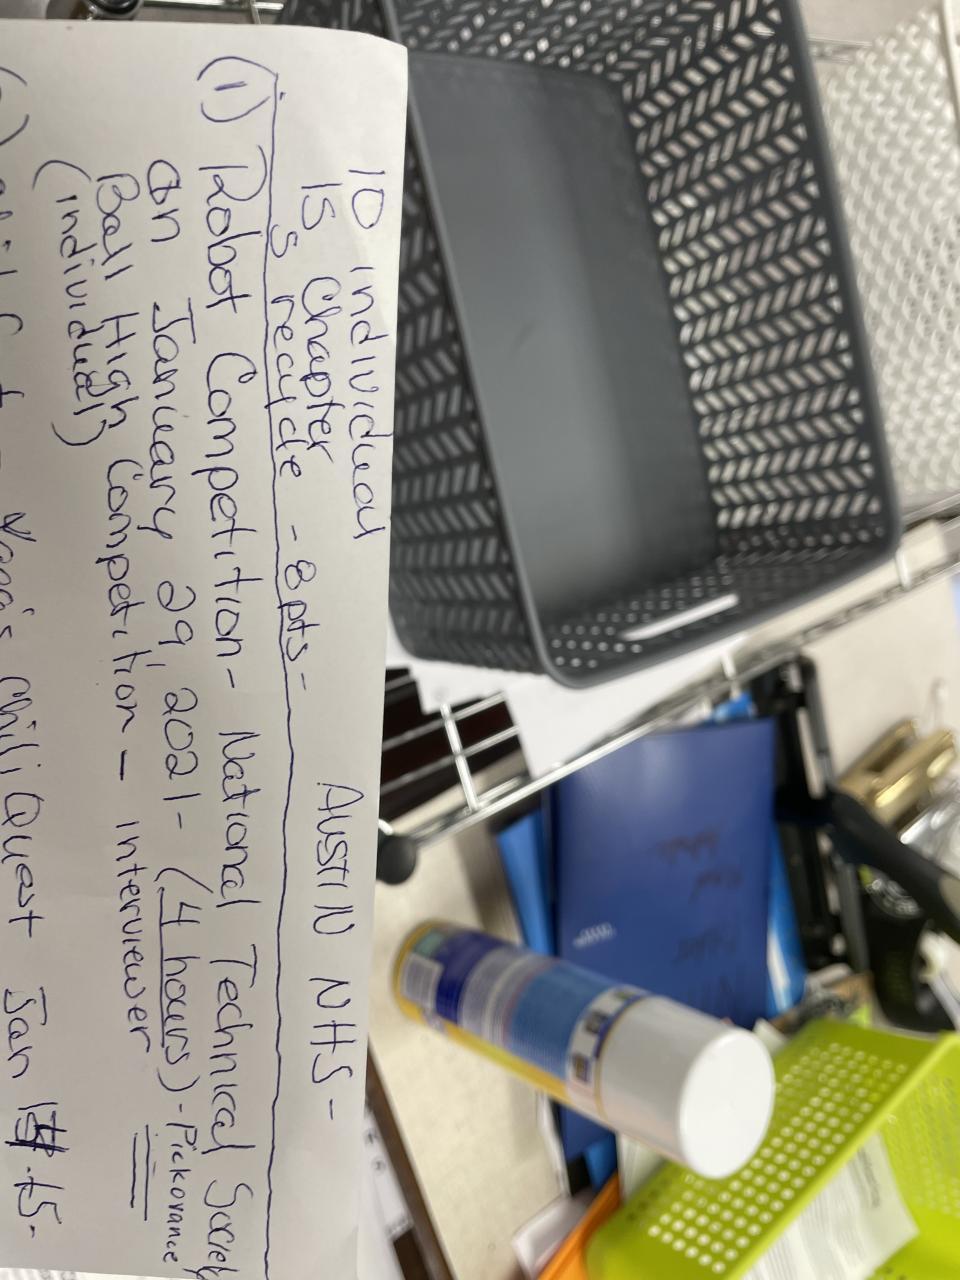 10 individual
15 Chapter AUSTIN NHS -
5 recycle - 8pts -
(1) Robot Competition - National Technical Society
on January 29, 2021 - (4 hours) - Pickorance
Ball High Competition - interviewer
(individual)
Chili Quest Jan 15 -